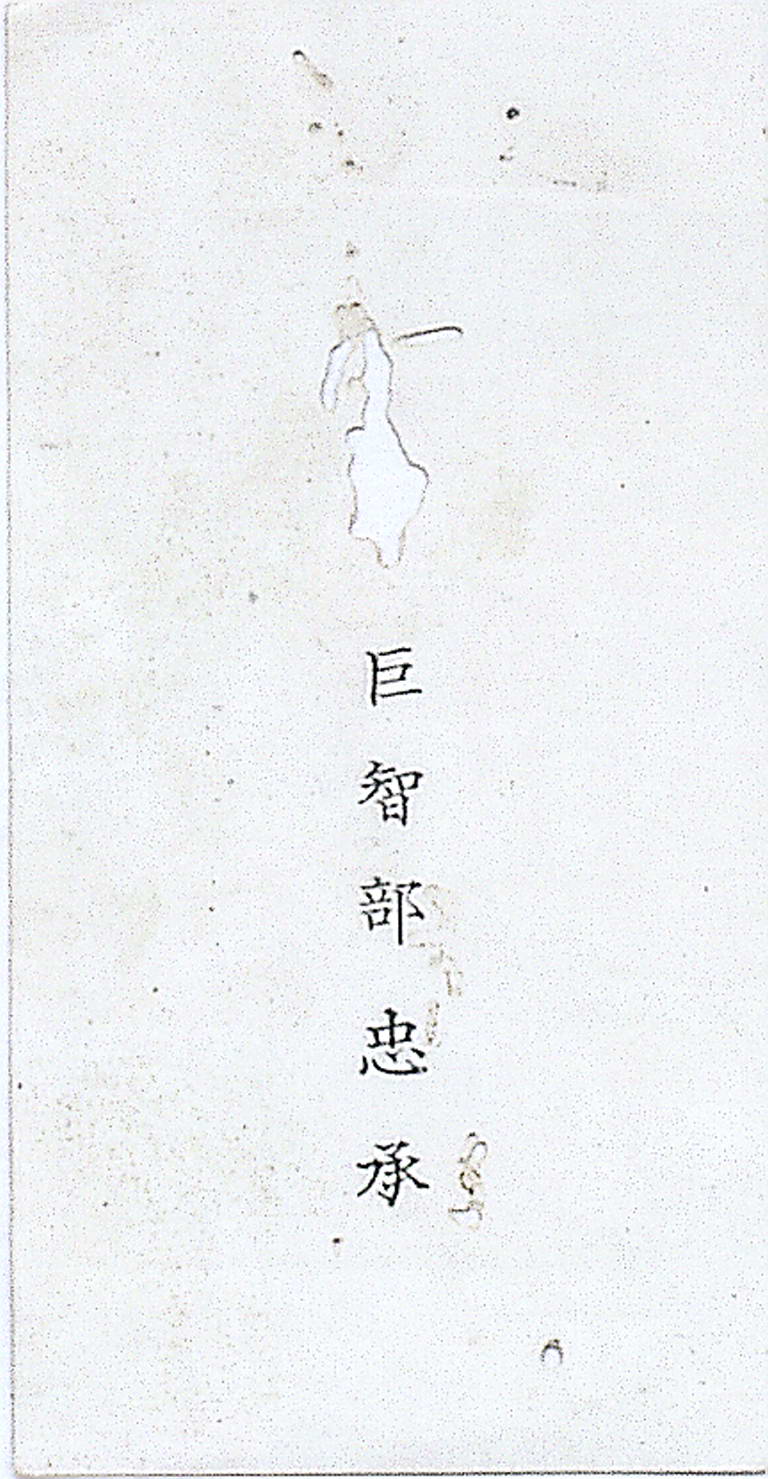 巨智部忠承